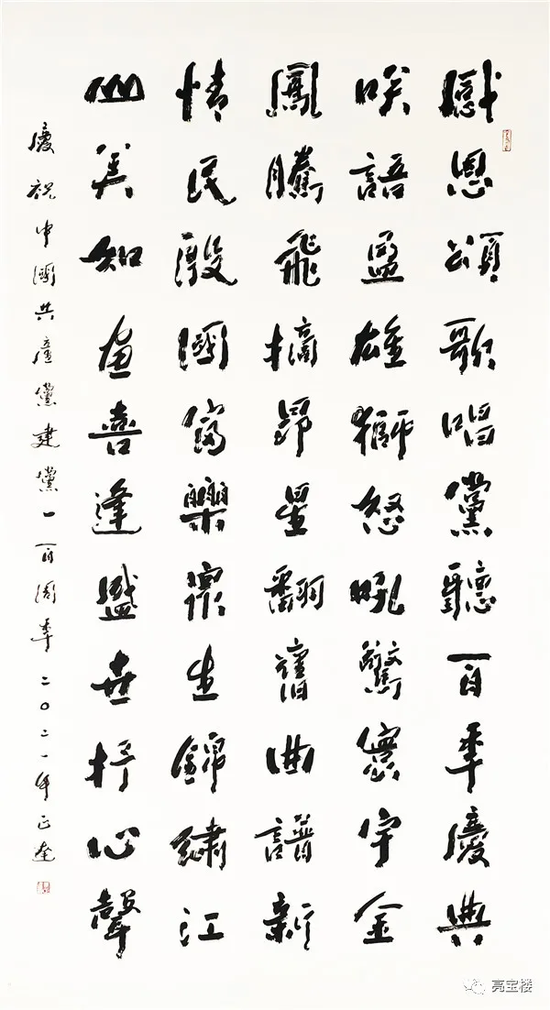 感恩頌歌唱黨聽百年慶典
咲語盈雄獅怒吼驚寰宇金
鳳騰飛摘昴星翻舊曲譜新
情民殷國富樂懷生錦繡江
山美如画喜逢盛世抒心聲
慶祝中國共產黨建黨一百周年二〇二一年正
亮宝楼